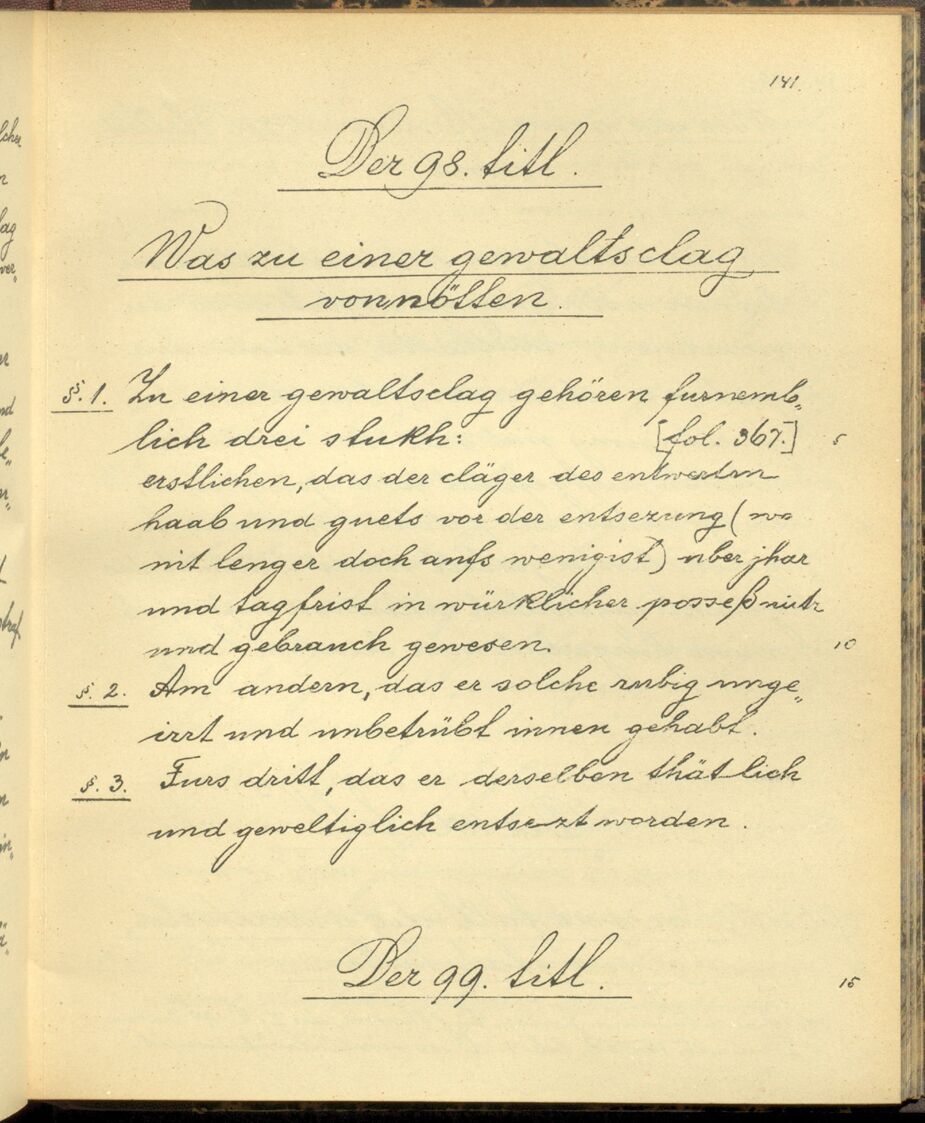 141.
Der 98. titl.
Was zu einer gewaltsclag
vonnötten.
§. 1. Zu einer gewaltsclag gehören furnemb„
lich drei stukh: [fol. 367.] 5
erstlichen, das der cläger des entwertn
haab und guets vor der entsezung (wo
nit lenger doch aufs wenigist) uber jhar
und tagfrist in würklicher posseß nutz
und gebrauch gewesen. 10
§. 2. Am andern, das er solche ruebig unge„
irrt und unbetrübt innen gehabt.
§. 3. Furs dritt, das er derselben thätlich
und geweltiglich entsezt worden.
Der 99. titl. 15